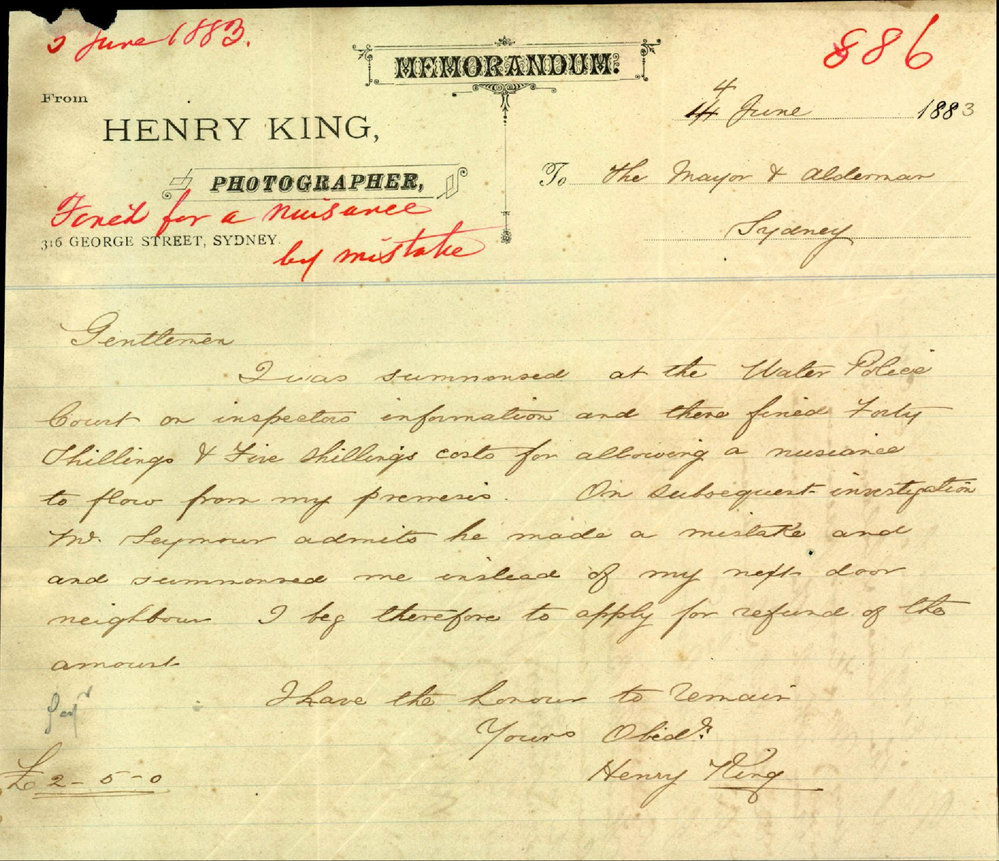 5 June 1883.
886
MEMORANDUM:
From
HENRY KING,
PHOTOGRAPHER,
316 GEORGE STREET, SYDNEY.
Fined for a nuisance
by mistake
4 June 1883
To the Mayor & Alderman
Sydney
Gentlemen
I was summonsed at the Water Police
Court on inspectors information and there fined Forty
Shillings & Five Shillings costs for allowing a nusiance
to flow from my premesis. On subsequent investigation
Mr. Seymour admits he made a mistake and
and summonsed me instead of my next door
neighbour I beg therefore to apply for refund of the
amount
I have the honour to remain
Yours Obedt.
Henry King
£2-5-0